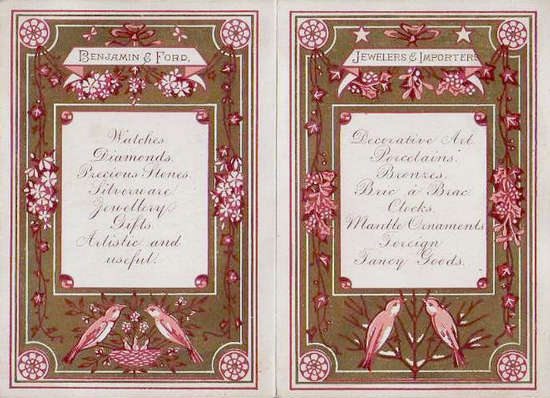 BENJAMIN & FORD,
Watches
Diamonds.
Precious Stones
Silverware
Jewellery
Gifts.
Artistic and
useful.
JEWELERS & IMPORTERS
Decorative Art.
Porcelains.
Bronzes.
Bric à Brac
Clocks.
Mantle Ornaments.
Foreign
Fancy Goods.